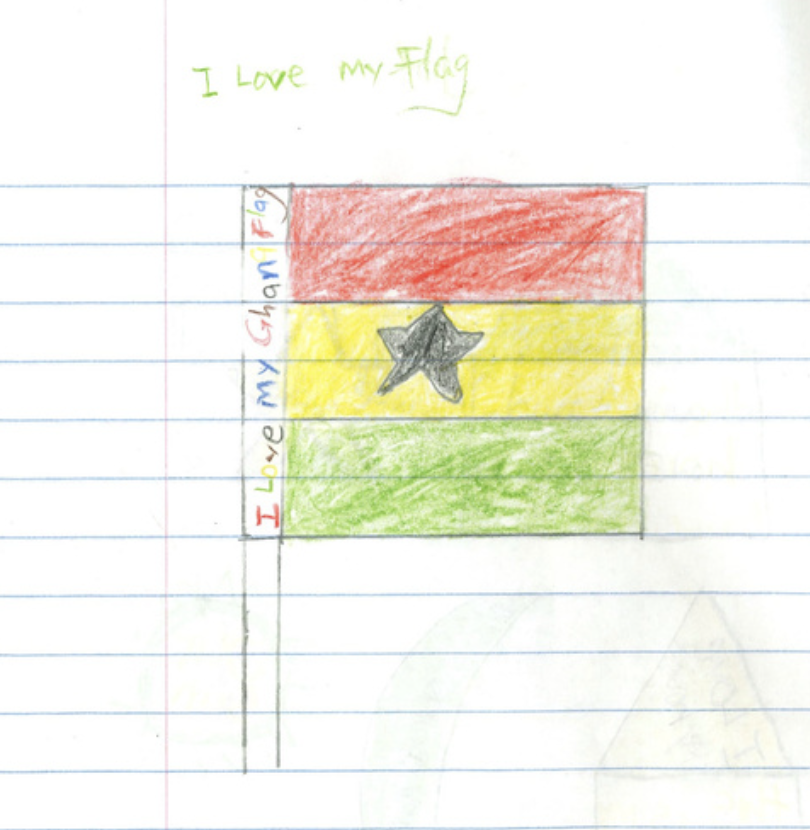 I Love my Flag
I Love my Ghana Flag